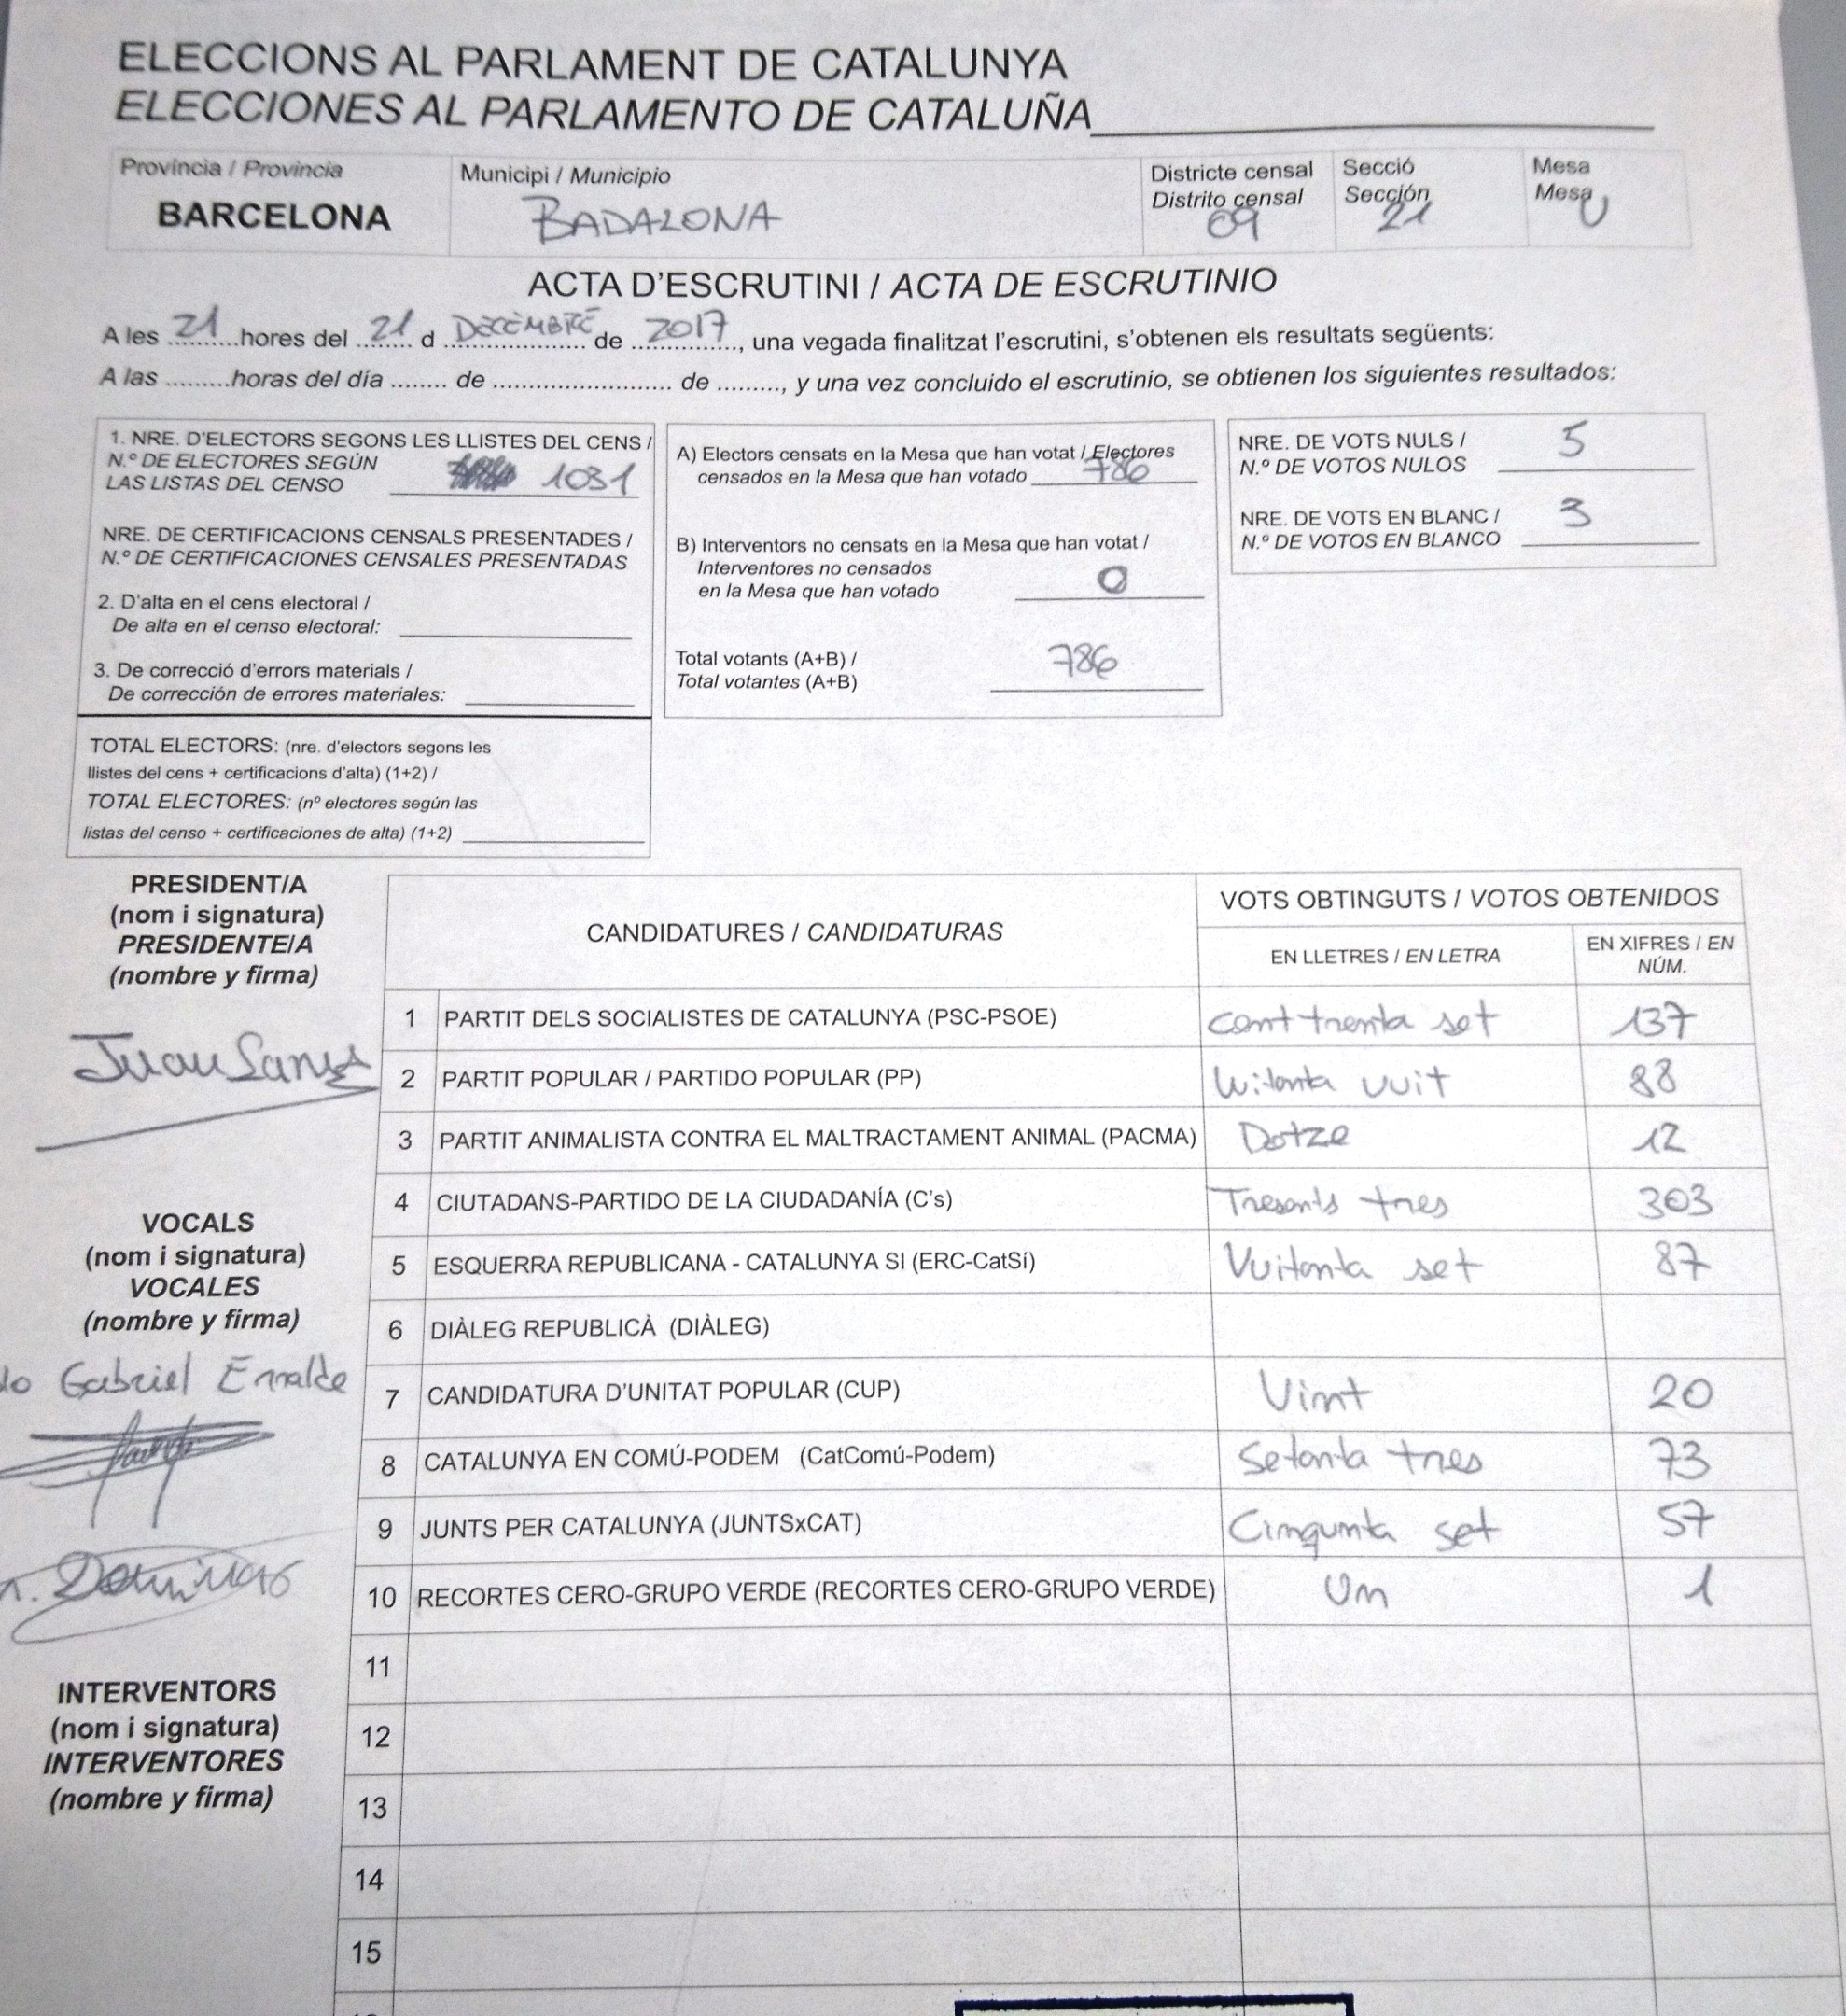 ELECCIONS AL PARLAMENT DE CATALUNYA
ELECCIONES AL PARLAMENTO DE CATALUÑA
Província / Provincia
BARCELONA
Municipi / Municipio
BADALONA
Districte censal
Distrito censal
09
Secció
Sección
21
Mesa
Mesa
U
ACTA D'ESCRUTINI / ACTA DE ESCRUTINIO
A les 21 hores del 21 d DECEMBRE de 2017, una vegada finalitzat l'escrutini, s'obtenen els resultats següents:
A las ......... horas del día ........ de ........................... de ........., y una vez concluido el escrutinio, se obtienen los siguientes resultados:
1. NRE. D'ELECTORS SEGONS LES LLISTES DEL CENS /
N.º DE ELECTORES SEGÚN
LAS LISTAS DEL CENSO 1031
NRE. DE CERTIFICACIONS CENSALS PRESENTADES /
N.º DE CERTIFICACIONES CENSALES PRESENTADAS
2. D'alta en el cens electoral /
De alta en el censo electoral:
3. De correcció d'errors materials /
De corrección de errores materiales:
TOTAL ELECTORS: (nre. d'electors segons les
llistes del cens + certificacions d'alta) (1+2) /
TOTAL ELECTORES: (nº electores según las
listas del censo + certificaciones de alta) (1+2)
A) Electors censats en la Mesa que han votat / Electores
censados en la Mesa que han votado 786
B) Interventors no censats en la Mesa que han votat /
Interventores no censados
en la Mesa que han votado 0
Total votants (A+B) /
Total votantes (A+B) 786
NRE. DE VOTS NULS /
N.º DE VOTOS NULOS 5
NRE. DE VOTS EN BLANC /
N.º DE VOTOS EN BLANCO 3
PRESIDENT/A
(nom i signatura)
PRESIDENTE/A
(nombre y firma)
Juan
VOCALS
(nom i signatura)
VOCALES
(nombre y firma)
Gabriel
INTERVENTORS
(nom i signatura)
INTERVENTORES
(nombre y firma)
CANDIDATURES / CANDIDATURAS
VOTS OBTINGUTS / VOTOS OBTENIDOS
EN LLETRES / EN LETRA
EN XIFRES / EN
NÚM.
1 PARTIT DELS SOCIALISTES DE CATALUNYA (PSC-PSOE) cent trenta set 137
2 PARTIT POPULAR / PARTIDO POPULAR (PP) vuit 88
3 PARTIT ANIMALISTA CONTRA EL MALTRACTAMENT ANIMAL (PACMA) Dotze 12
4 CIUTADANS-PARTIDO DE LA CIUDADANÍA (C's) Tresents tres 303
5 ESQUERRA REPUBLICANA - CATALUNYA SI (ERC-CatSí) Vuitanta set 87
6 DIÀLEG REPUBLICÀ (DIÀLEG)
7 CANDIDATURA D'UNITAT POPULAR (CUP) Vint 20
8 CATALUNYA EN COMÚ-PODEM (CatComú-Podem) Setanta tres 73
9 JUNTS PER CATALUNYA (JUNTSxCAT) Cinqunta set 57
10 RECORTES CERO-GRUPO VERDE (RECORTES CERO-GRUPO VERDE) Un 1
11
12
13
14
15